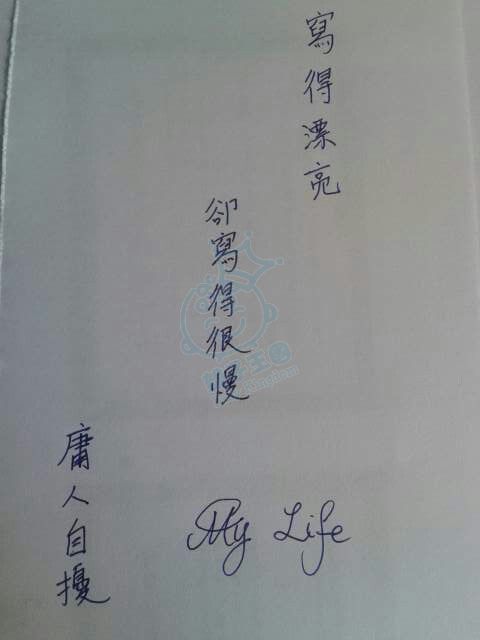 寫得漂亮
卻寫得很慢
庸人自擾
My Life